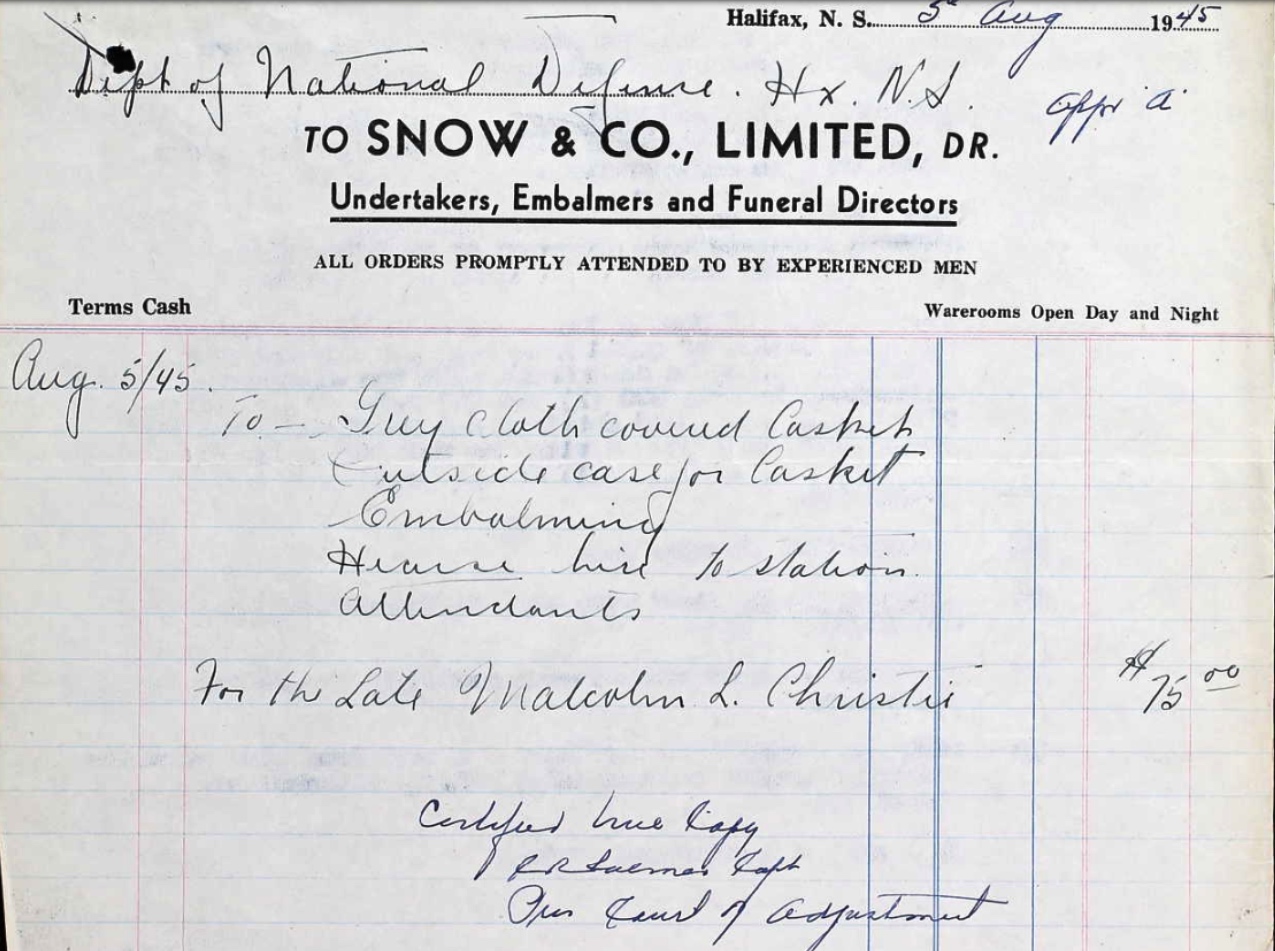 Halifax, N. S. 5 Aug 1945
Dept of National Defense. Hx. N.S.
App "A"
TO SNOW & CO., LIMITED, DR.
Undertakers, Embalmers and Funeral Directors
ALL ORDERS PROMPTLY ATTENDED TO BY EXPERIENCED MEN
Terms Cash Warerooms Open Day and Night
Aug. 5/45.
To - Grey cloth covered Casket
Outside case for Casket
Embalming
Hearse hire to station.
Attendants
For the Late Malcolm L. Christie $75 00
Certified true Copy
Capt
Pres Court of Adjustment